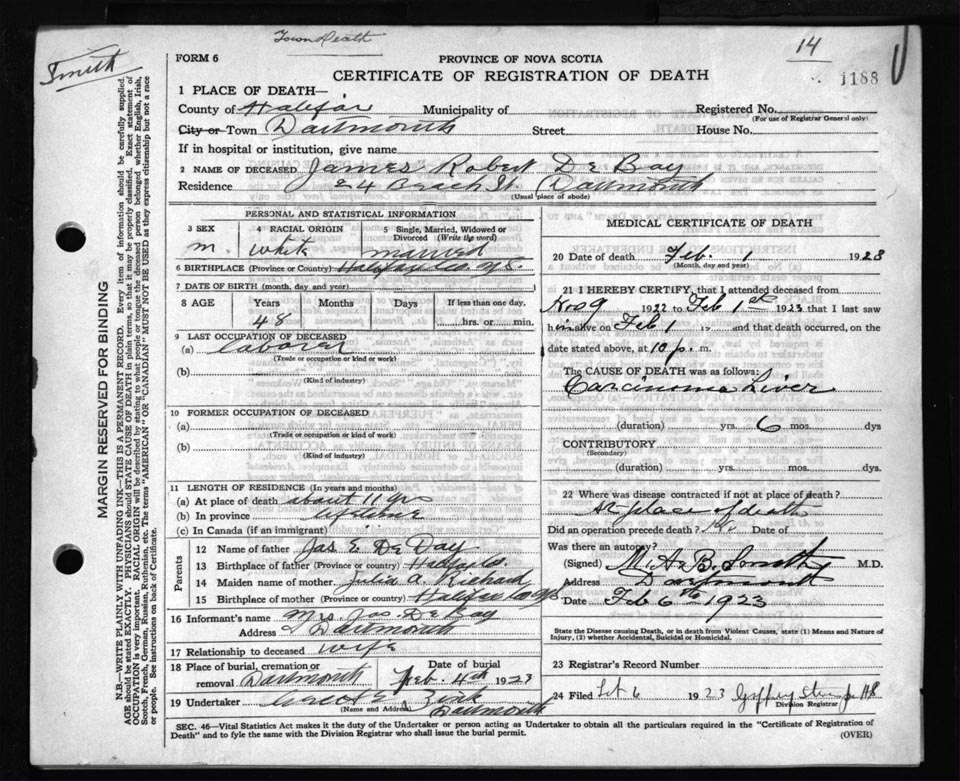 Town Death
14
Smith
FORM 6
PROVINCE OF NOVA SCOTIA
CERTIFICATE OF REGISTRATION OF DEATH
1188
1 PLACE OF DEATH—
County of Halifax Municipality of Registered No.
(For use of Registrar General only)
City or Town Dartmouth Street House No.
If in hospital or institution, give name
2 NAME OF DECEASED James Robert De Bay
Residence 24 Beach St. Dartmouth
(Usual place of abode)
PERSONAL AND STATISTICAL INFORMATION
3 SEX 4 RACIAL ORIGIN 5 Single, Married, Widowed or
Divorced (Write the word)
m. White married
6 BIRTHPLACE (Province or Country) Halifax Co. N.S.
7 DATE OF BIRTH (month, day and year)
8 AGE Years Months Days If less than one day,
48 hrs. or min.
9 LAST OCCUPATION OF DECEASED
(a) laborer
(Trade or occupation or kind or work)
(b)
(Kind of industry)
10 FORMER OCCUPATION OF DECEASED
(a)
(Trade or occupation or kind of work)
(b)
(Kind of industry)
11 LENGTH OF RESIDENCE (In years and months)
(a) At place of death about 11 yrs
(b) In province lifetime
(c) In Canada (if an immigrant)
Parents
12 Name of father Jas E. De Bay
13 Birthplace of father (Province or country) Halifax Co.
14 Maiden name of mother Julia A. Richard
15 Birthplace of mother (Province or country) Halifax Co NS
16 Informant's name Mrs Jas De Bay
Address Dartmouth
17 Relationship to deceased wife
18 Place of burial, cremation or Date of burial
removal Dartmouth Feb. 4th 1923
19 Undertaker Zink
(Name and Address) Dartmouth
MEDICAL CERTIFICATE OF DEATH
20 Date of death Feb. 1 1923
(Month, day and year)
21 I HEREBY CERTIFY, that I attended deceased from
1922 to Feb 1st 1923 that I last saw
him alive on Feb 1 19 and that death occurred, on the
date stated above, at 10 p. m.
The CAUSE OF DEATH was as follows:
Carcinoma Liver
(duration) yrs. 6 mos. dys
CONTRIBUTORY
(Secondary)
(duration) yrs. mos. dys
22 Where was disease contracted if not at place of death?
At place of death
Did an operation precede death? No Date of
Was there an autopsy?
(Signed) M. A. B. Smith M.D.
Address Dartmouth
Date Feb 6th 1923
State the Disease causing Death, or in death from Violent Causes, state (1) Means and Nature of
Injury, (2) whether Accidental, Suicidal or Homicidal.
23 Registrar's Record Number
24 Filed Feb 6 1923
Division Registrar
SEC. 46—Vital Statistics Act makes it the duty of the Undertaker or person acting as Undertaker to obtain all the particulars required in the "Certificate of Registration of
Death" and to fyle the same with the Division Registrar who shall issue the burial permit. (OVER)
MARGIN RESERVED FOR BINDING
N.B.—WRITE PLAINLY WITH UNFADING INK—THIS IS A PERMANENT RECORD. Every item of information should be carefully supplied.
AGE should be stated EXACTLY. PHYSICIANS should STATE CAUSE OF DEATH in plain terms, so that it may be properly classified. Exact statement of
OCCUPATION is very important. RACIAL ORIGIN will be described by stating to what people or tongue the deceased person belonged whether English, Irish,
Scotch, French, German, Russian, Ruthenian, etc. The terms "AMERICAN" OR "CANADIAN" MUST NOT BE USED as they express citizenship but not a race
or people. See instructions on back of Certificate.